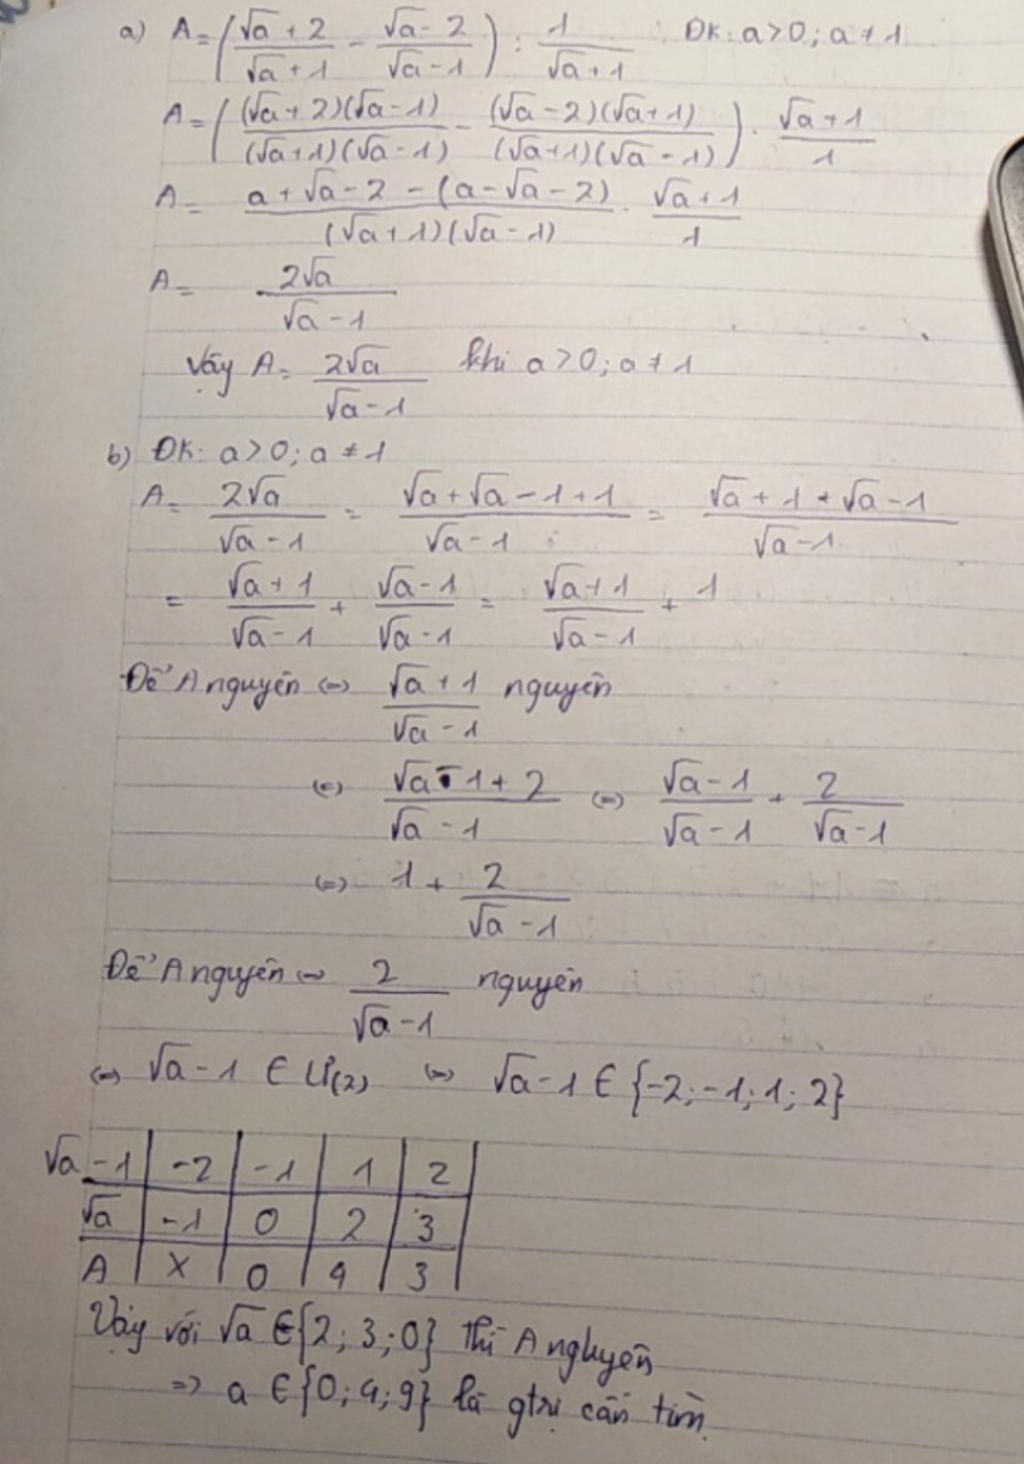 a) A = ( (√a + 2)/(√a + 1) - (√a - 2)/(√a - 1) ) : 1/(√a + 1) ĐK: a > 0; a ≠ 1
A = ( (√a + 2)(√a - 1)/(√a + 1)(√a - 1) - (√a - 2)(√a + 1)/(√a + 1)(√a - 1) ) . (√a + 1)/1
A = (a + √a - 2 - (a - √a - 2))/(√a + 1)(√a - 1) . (√a + 1)/1
A = 2√a/(√a - 1)
Vậy A = 2√a/(√a - 1) khi a > 0; a ≠ 1
b) ĐK: a > 0; a ≠ 1
A = 2√a/(√a - 1) = (√a + √a - 1 + 1)/(√a - 1) = (√a + 1 + √a - 1)/(√a - 1)
= (√a + 1)/(√a - 1) + (√a - 1)/(√a - 1) = (√a + 1)/(√a - 1) + 1
Để A nguyên ⇔ (√a + 1)/(√a - 1) nguyên
⇔ (√a - 1 + 2)/(√a - 1) ⇔ (√a - 1)/(√a - 1) + 2/(√a - 1)
⇔ 1 + 2/(√a - 1)
Để A nguyên ⇔ 2/(√a - 1) nguyên
⇔ √a - 1 ∈ Ư(2) ⇔ √a - 1 ∈ {-2; -1; 1; 2}
√a - 1 | -2 | -1 | 1 | 2
√a | -1 | 0 | 2 | 3
A | X | 0 | 4 | 3
Vậy với √a ∈ {2; 3; 0} thì A nguyên
=> a ∈ {0; 4; 9} là gtrị cần tìm